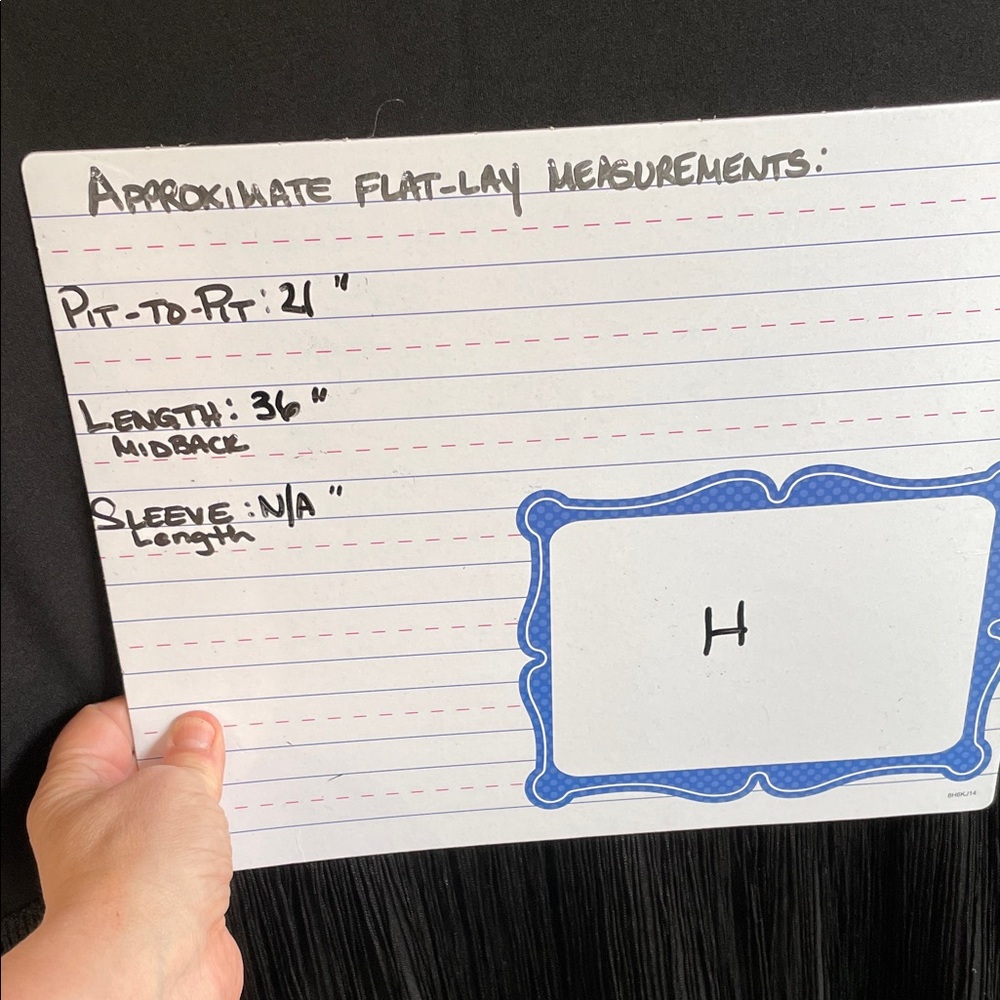 APPROXIMATE FLAT-LAY MEASUREMENTS:
PIT-TO-PIT: 21"
LENGTH: 36"
MIDBACK
SLEEVE: N/A"
Length
H